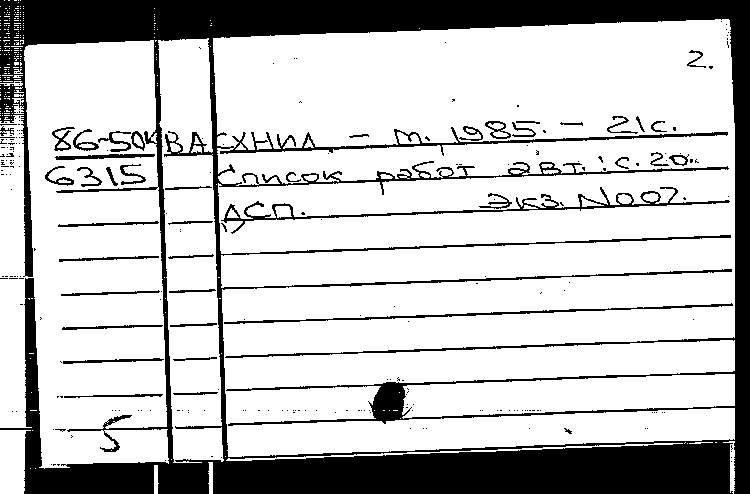 2.
86-50к ВАСХНИЛ. - М., 1985. - 21с.
6315 Список работ авт.: с. 20.
ДСП. Экз. N007.
5